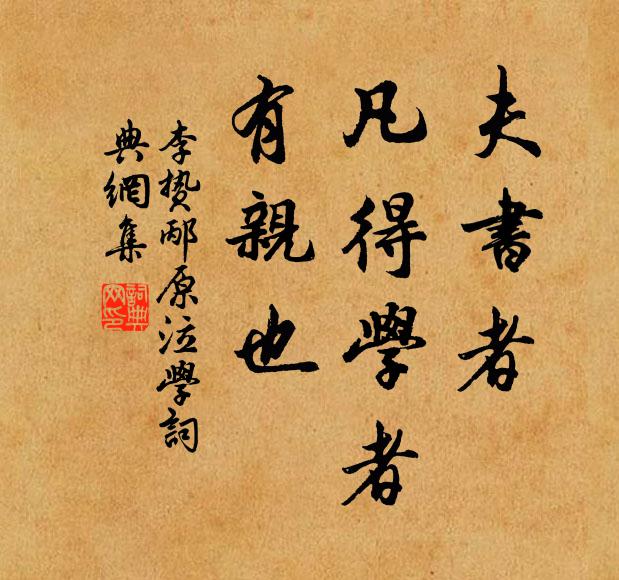 夫書者
凡得學者
有親也
李贄邴原泣學詞
典網集
詞典
网印